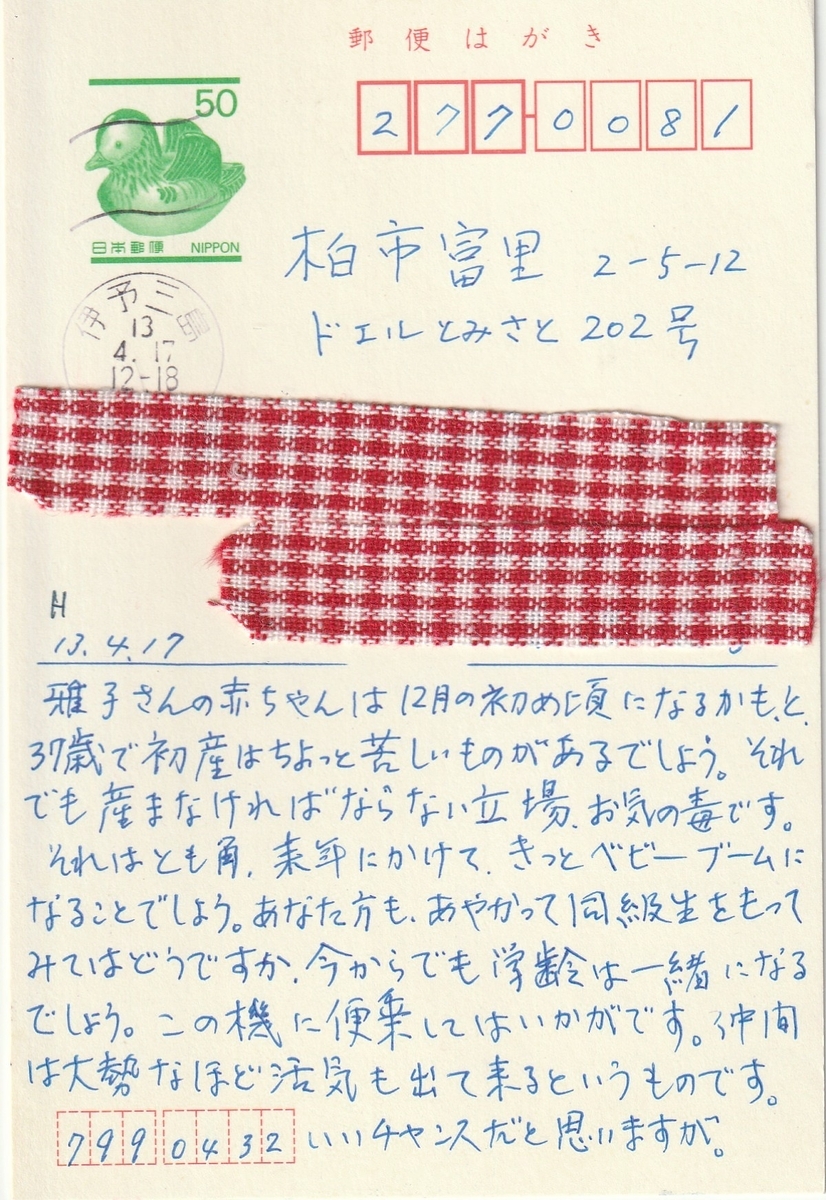 郵便はがき
50
日本郵便 NIPPON
277-0081
柏市富里 2-5-12
ドエルとみさと 202号
伊予三島
13
4.17
12-18
H
13.4.17
雅子さんの赤ちゃんは12月の初め頃になるかも、と、
37歳で初産はちょっと苦しいものがあるでしょう。それ
でも産まなければならない立場、お気の毒です。
それはとも角、来年にかけて、きっとベビーブームに
なることでしょう。あなた方も、あやかって同級生をもって
みてはどうですか、今からでも学齢は一緒になる
でしょう。この機に便乗してはいかがです。仲間
は大勢なほど活気も出て来るというものです。
799 0432 いいチャンスだと思いますが。